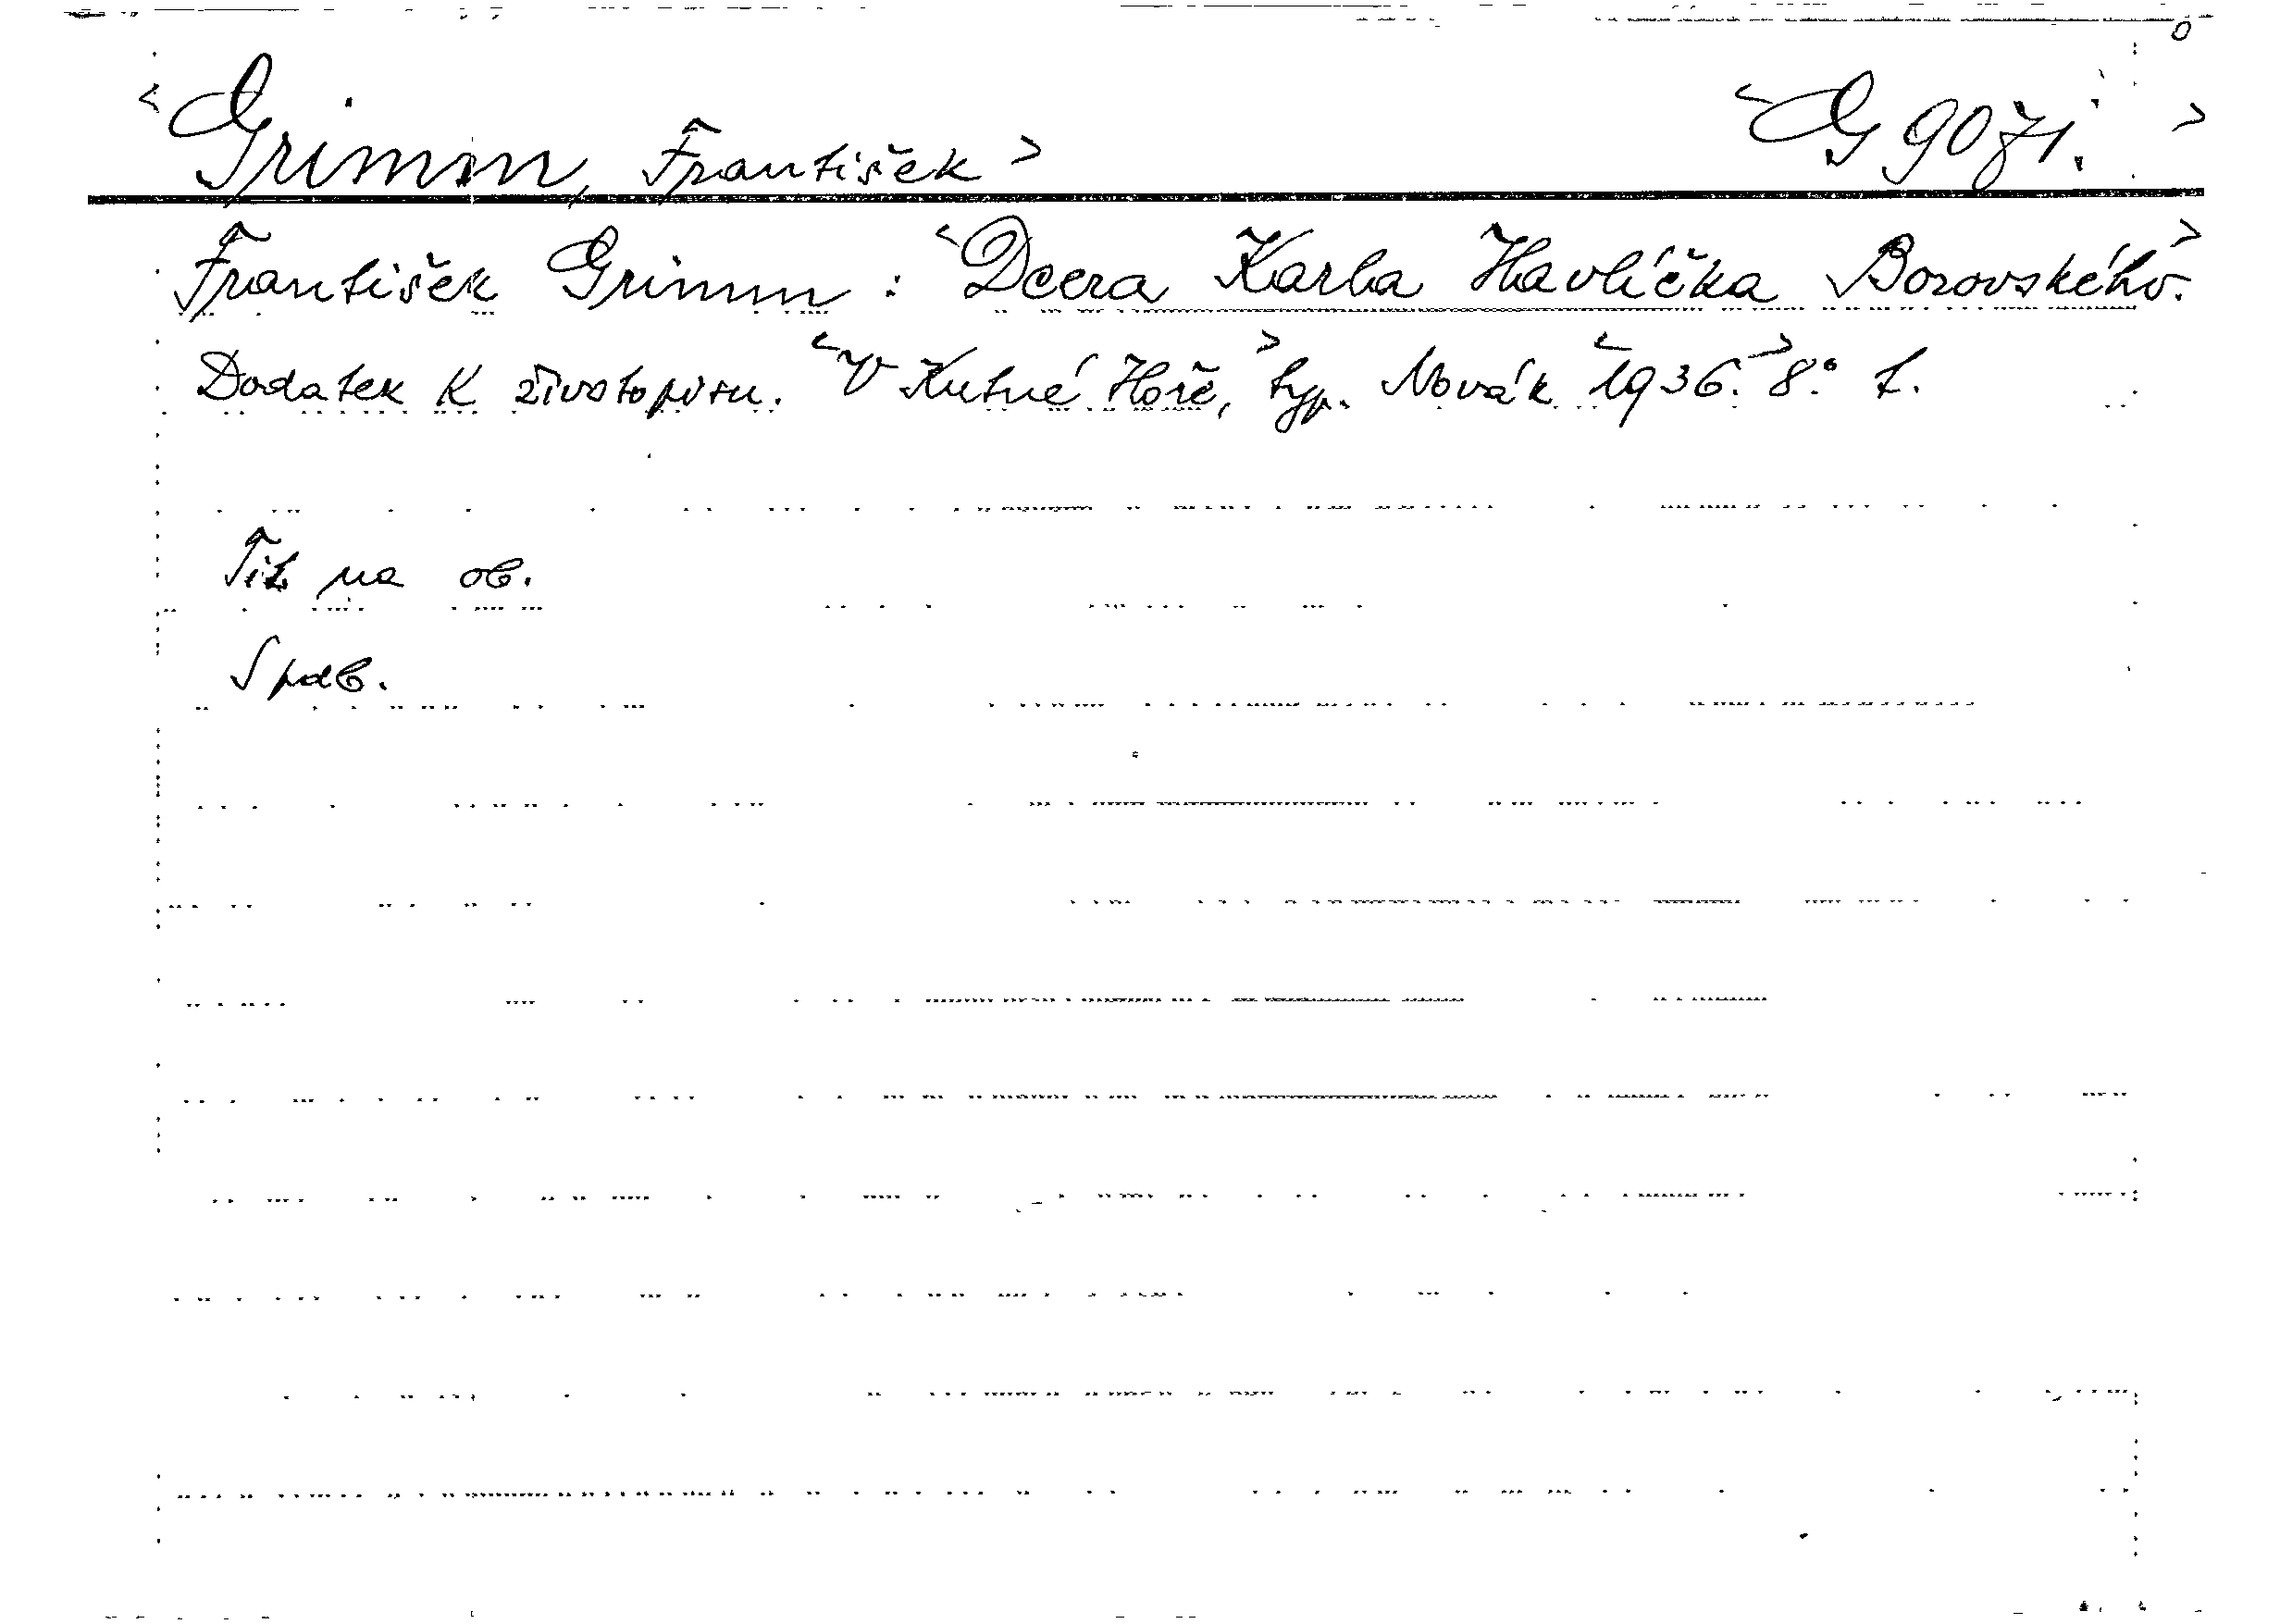 <Grimm, František> <G 9071.>
František Grimm: <Dcera Karla Havlíčka Borovského.>
Dodatek k životopisu. <V Kutné Hoře,> typ. Novák <1936.> 8°. t.
Tit. na ob.
Spdb.